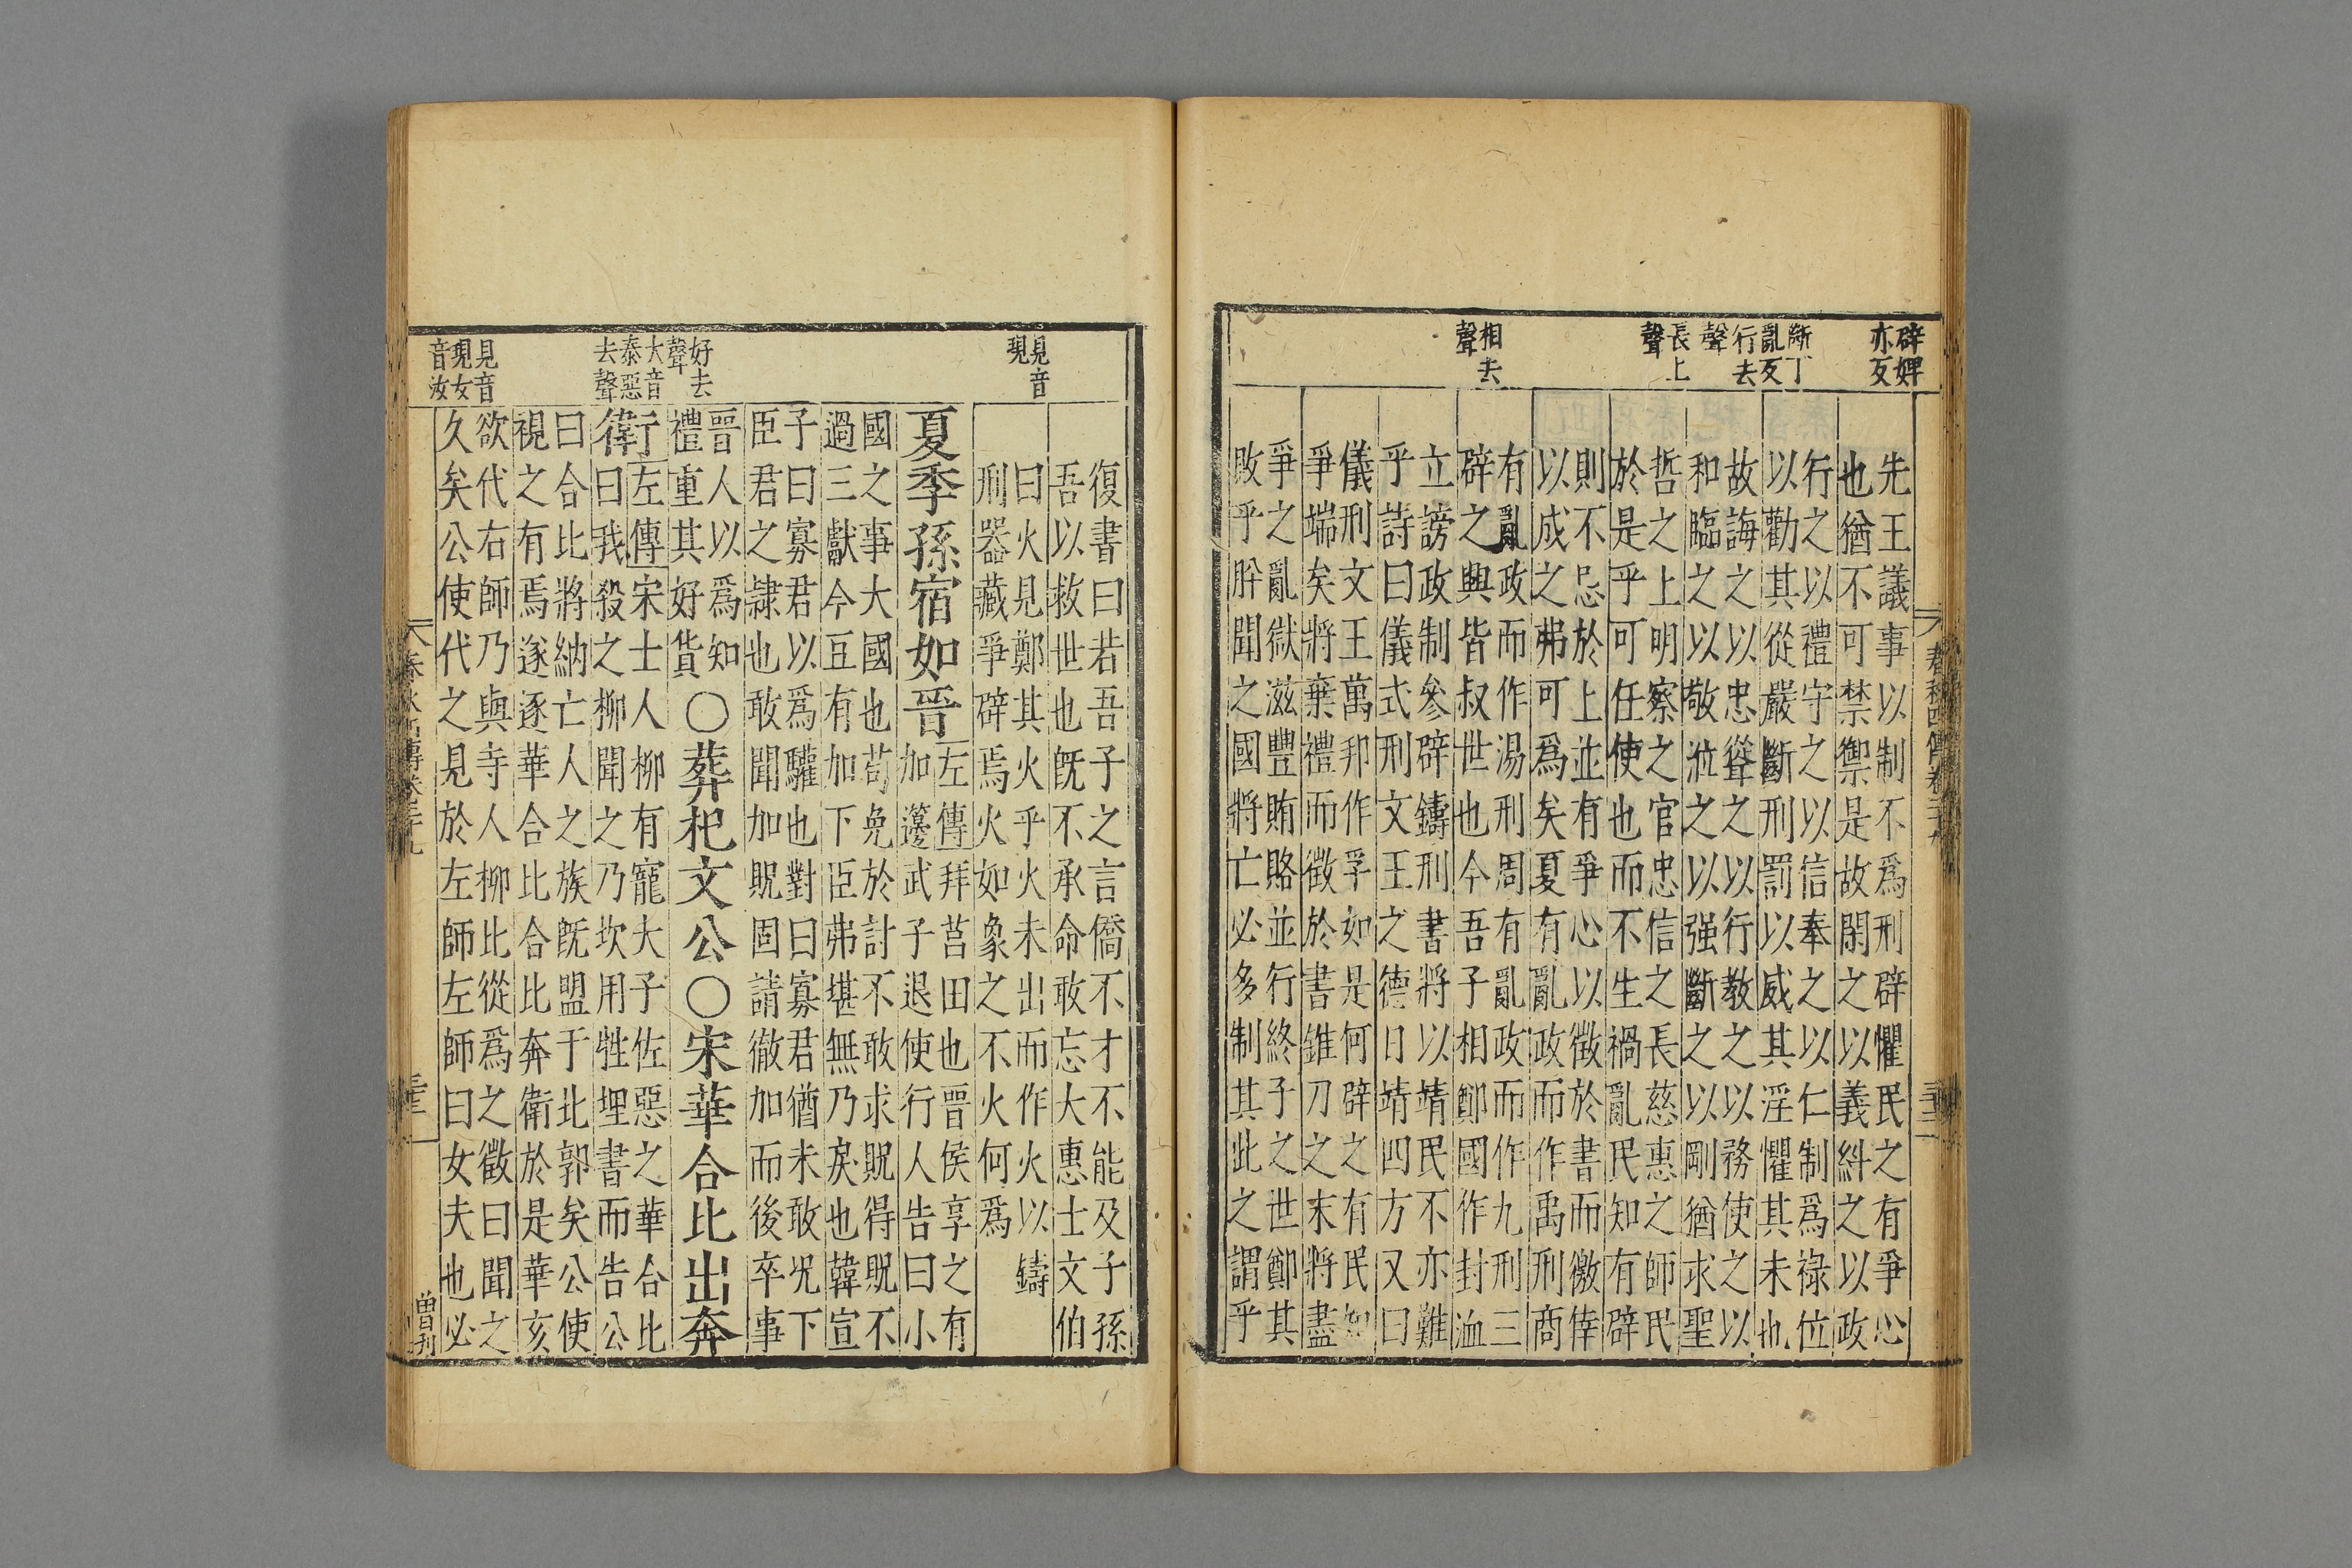 辟婢
亦反
斷丁
亂反
行去
聲
長上
聲
相去
聲
先王議事以制不爲刑辟懼民之有爭心
也猶不可禁禦是故閑之以義糾之以政
行之以禮守之以信奉之以仁制爲祿位
以勸其從嚴斷刑罰以威其淫懼其未也
故誨之以忠聳之以行教之以務使之以
和臨之以敬涖之以强斷之以剛猶求聖
哲之上明察之官忠信之長慈惠之師民
於是乎可任使也而不生禍亂民知有辟
則不忌於上並有爭心以徵於書而徼倖
以成之弗可爲矣夏有亂政而作禹刑商
有亂政而作湯刑周有亂政而作九刑三
辟之興皆叔世也今吾子相鄭國作封洫
立謗政制參辟鑄刑書將以靖民不亦難
乎詩曰儀式刑文王之德日靖四方又曰
儀刑文王萬邦作孚如是何辟之有民知
爭端矣將棄禮而徵於書錐刀之末將盡
爭之亂獄滋豐賄賂並行終子之世鄭其
敗乎肸聞之國將亡必多制其此之謂乎
見音
現
好去
聲
大音
泰惡
去聲
見音
現女
音汝
復書曰若吾子之言僑不才不能及子孫
吾以救世也旣不承命敢忘大惠士文伯
曰火見鄭其火乎火未出而作火以鑄
刑器藏爭辟焉火如象之不火何爲
夏季孫宿如晉
左傳拜莒田也晉侯享之有
加籩武子退使行人告曰小
國之事大國也苟免於討不敢求貺得貺不
過三獻今豆有加下臣弗堪無乃戾也韓宣
子曰寡君以爲驩也對曰寡君猶未敢况下
臣君之隸也敢聞加貺固請徹加而後卒事
晉人以爲知
禮重其好貨
○葬杞文公○宋華合比出奔
衛
左傳宋士人柳有寵大子佐惡之華合比
曰我殺之柳聞之乃坎用牲埋書而告公
曰合比將納亡人之族旣盟于北郭矣公使
視之有焉遂逐華合比合比奔衛於是華亥
欲代右師乃與寺人柳比從爲之徵曰聞之
久矣公使代之見於左師左師曰女夫也必
春秋四傳卷二十九
曾刊